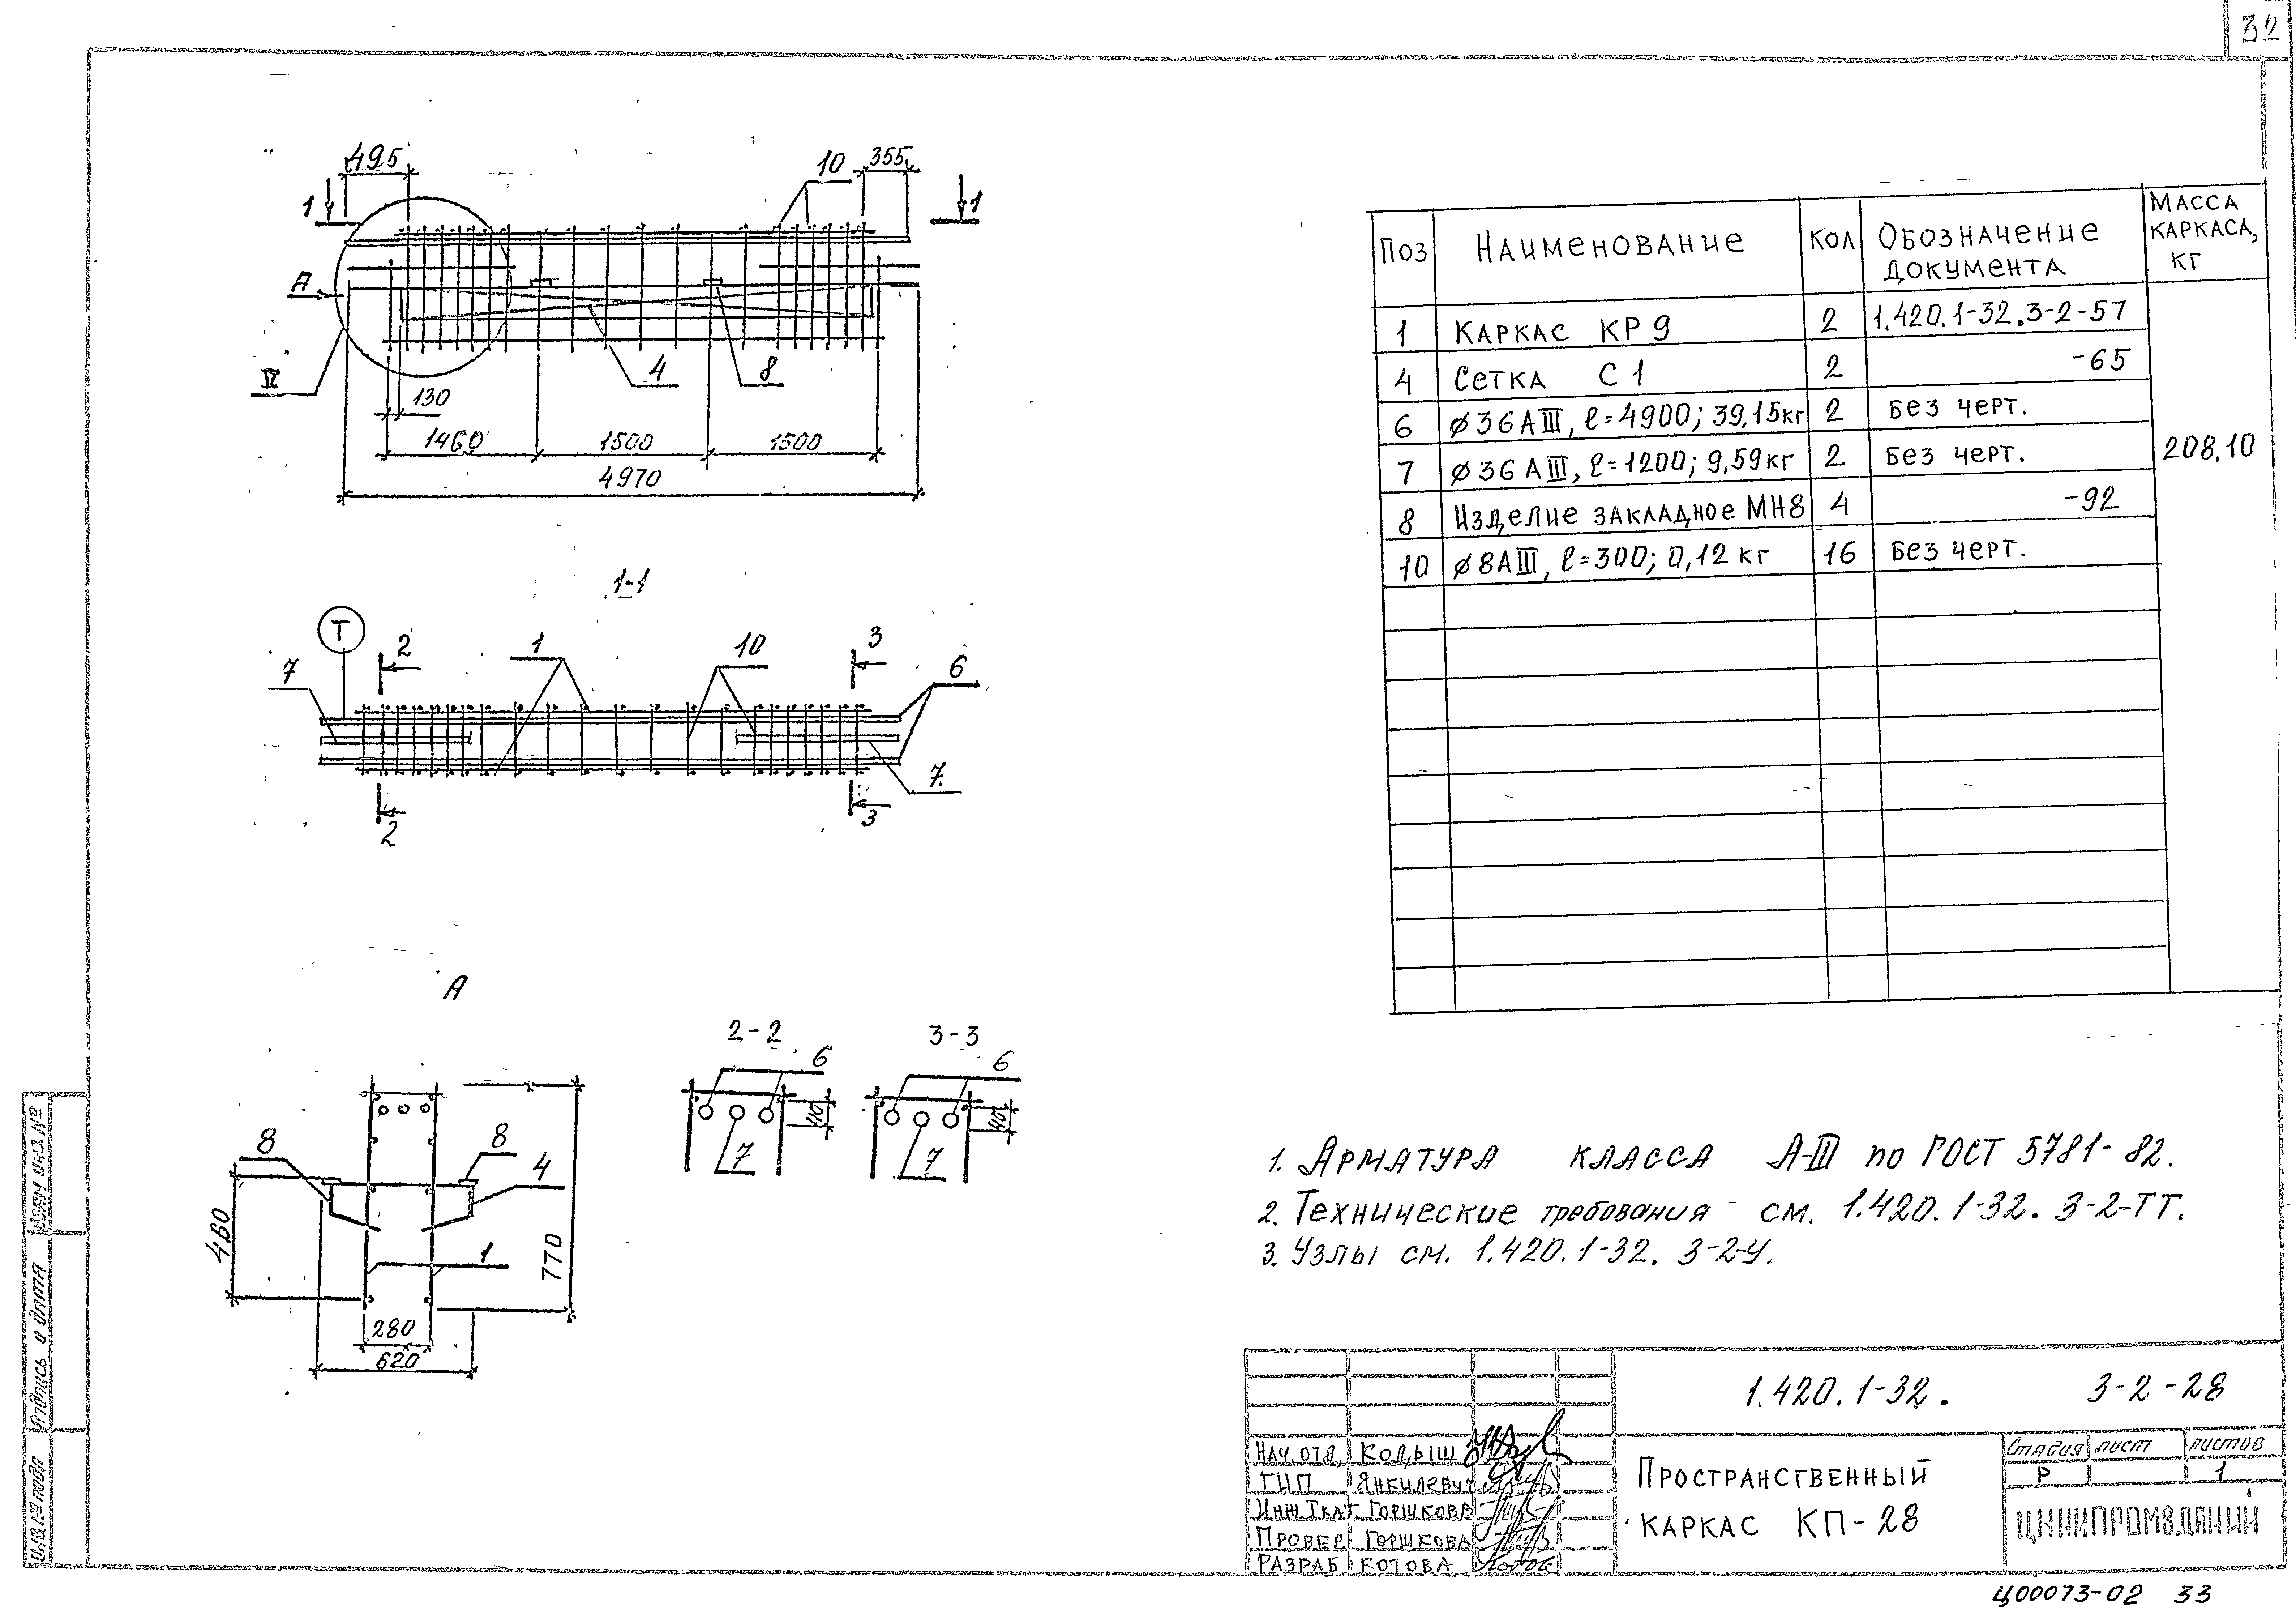 32
495
10
355
1
1
А
IV
4
8
130
1460
1500
1500
4970
1-1
Т
2
1
10
3
7
6
7
2
3
А
2-2
3-3
6
6
40
40
7
7
8
8
4
460
1
770
280
620
Поз
Наименование
Кол
Обозначение документа
Масса каркаса, кг
1 Каркас КР9 2 1.420.1-32.3-2-57
4 Сетка С1 2 -65
6 ⌀36АIII, ℓ=4900; 39,15кг 2 Без черт.
7 ⌀36АIII, ℓ=1200; 9,59кг 2 Без черт.
8 Изделие закладное МН8 4 -92
10 ⌀8АIII, ℓ=300; 0,12 кг 16 Без черт.
208,10
1. Арматура класса А-III по ГОСТ 5781-82.
2. Технические требования см. 1.420.1-32.3-2-ТТ.
3. Узлы см. 1.420.1-32.3-2-У.
1.420.1-32. 3-2-28
Нач.отд. Кодыш
ГИП Янкилевич
Инж.Iкат. Горшкова
Провер. Горшкова
Разраб. Котова
Пространственный
каркас КП-28
Стадия лист листов
Р 1
ЦНИИПРОМЗДАНИЙ
Взам. инв. №
Подпись и дата
Инв. № подл
Ц00073-02 33